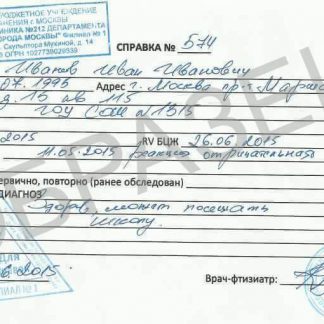 БЮДЖЕТНОЕ УЧРЕЖДЕНИЕ
НЕНИЯ г. МОСКВЫ
ИНИКА №212 ДЕПАРТАМЕНТА
ОРОДА МОСКВЫ" Филиал № 1
Скульптора Мухиной, д. 14
ОГРН 1027739029339
СПРАВКА № 574
Иванов Иван Иванович
07.1995 Адрес г. Москва пр-т Марша
д. 15 кв 115
ГОУ СОШ №1315
2015 RV БЦЖ 26.06.2015
11.05.2015 реакция отрицательная
ервично, повторно (ранее обследован)
ДИАГНОЗ
Здоров, может посещать
школу.
2015
Врач-фтизиатр:
ДЛЯ
ИЛИАЛ № 1
ОБРАЗЕЦ